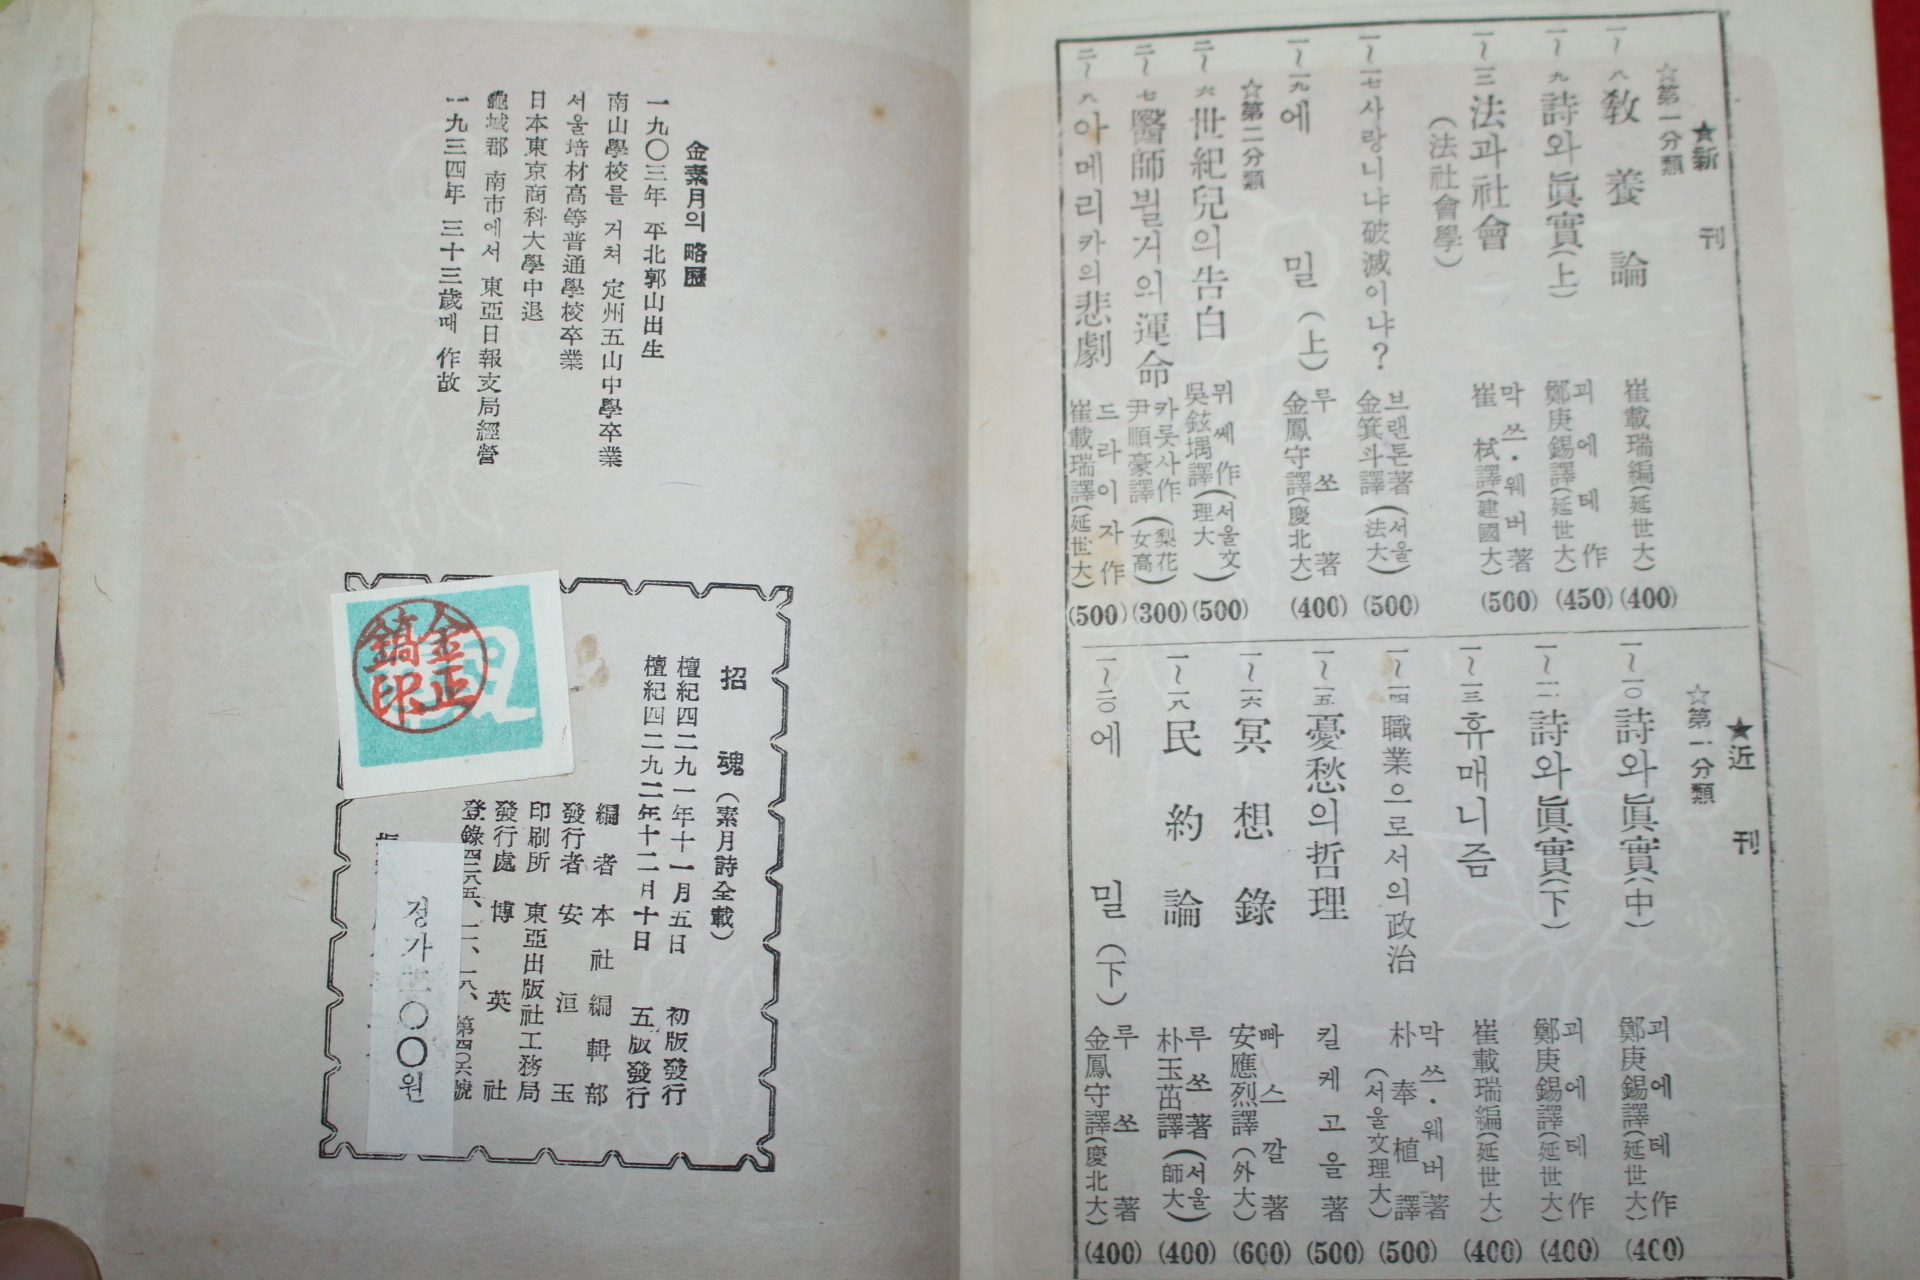 ★新刊
☆第一分類
一～八 敎養論 崔載瑞編(延世大) (400)
一～九 詩와眞實(上) 괴에테作 鄭庚錫譯(延世大) (450)
一～一三 法과社會(法社會學) 막쓰·웨버著 崔栻譯(建國大) (500)
一～一七 사랑니냐破滅이냐? 브랜튼著(서울) 金箕斗譯(法大) (500)
一～一九 에밀(上) 루쏘著 金鳳守譯(慶北大) (400)
☆第二分類
二～六 世紀兒의告白 뮈쎄作(서울文 吳鉉堣譯(理大) (500)
二～七 醫師뷜거의運命 카롯사作(梨花 尹順豪譯(女高) (300)
二～八 아메리카의悲劇 드라이자作 崔載瑞譯(延世大) (500)
★近刊
☆第一分類
一～一〇 詩와眞實(中) 괴에테作 鄭庚錫譯(延世大) (400)
一～一一 詩와眞實(下) 괴에테作 鄭庚錫譯(延世大) (400)
一～一三 휴매니즘 崔載瑞編(延世大) (400)
一～一四 職業으로서의政治 막쓰·웨버著 朴奉植譯(서울文理大) (500)
一～一五 憂愁의哲理 킬케고을著 (500)
一～一六 冥想錄 빠스깔著 安應烈譯(外大) (600)
一～一八 民約論 루쏘著(서울 朴玉茁譯(師大) (400)
一～二〇 에밀(下) 루쏘著 金鳳守譯(慶北大) (400)
金素月의 略歷
一九〇三年 平北郭山出生
南山學校를 거쳐 定州五山中學卒業
서울培材高等普通學校卒業
日本東京商科大學中退
龜城郡 南市에서 東亞日報支局經營
一九三四年 三十三歲때 作故
招魂(素月詩全載)
檀紀四二九一年十一月五日 初版發行
檀紀四二九二年十二月十日 五版發行
編者 本社編輯部
發行者 安洹玉
印刷所 東亞出版社工務局
發行處 博英社
登錄四二八五、一二、一八、第四〇六號
金正鎬印
정가 〇〇원